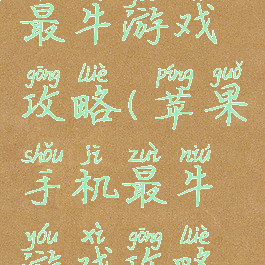 最牛游戏
gōng lüè píng guǒ
攻略(苹果
shǒu jī zuì niú
手机最牛
yóu xì gōng lüè
游戏攻略